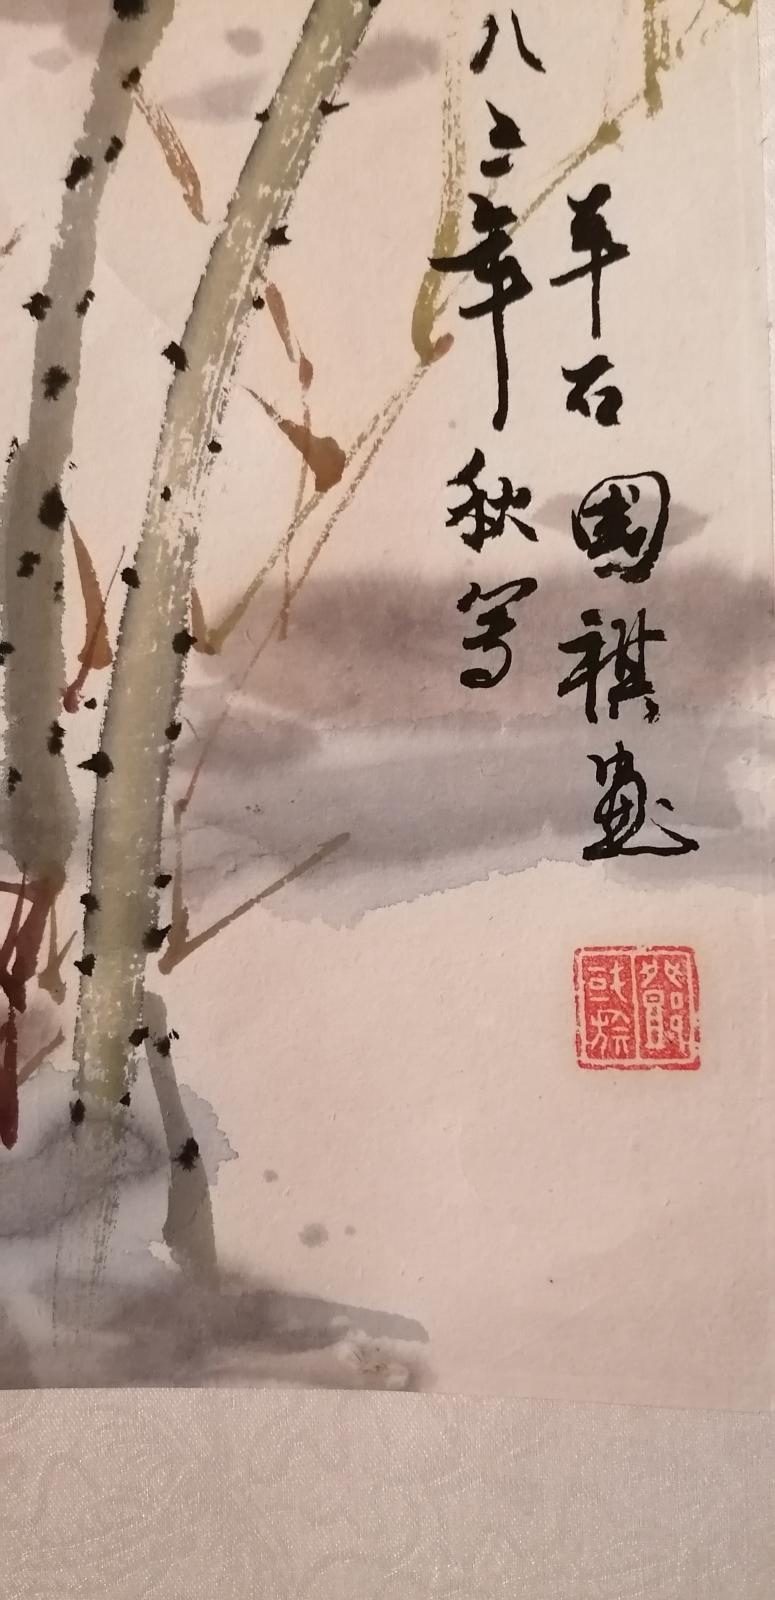 羊石國祺畫
八二年秋寫